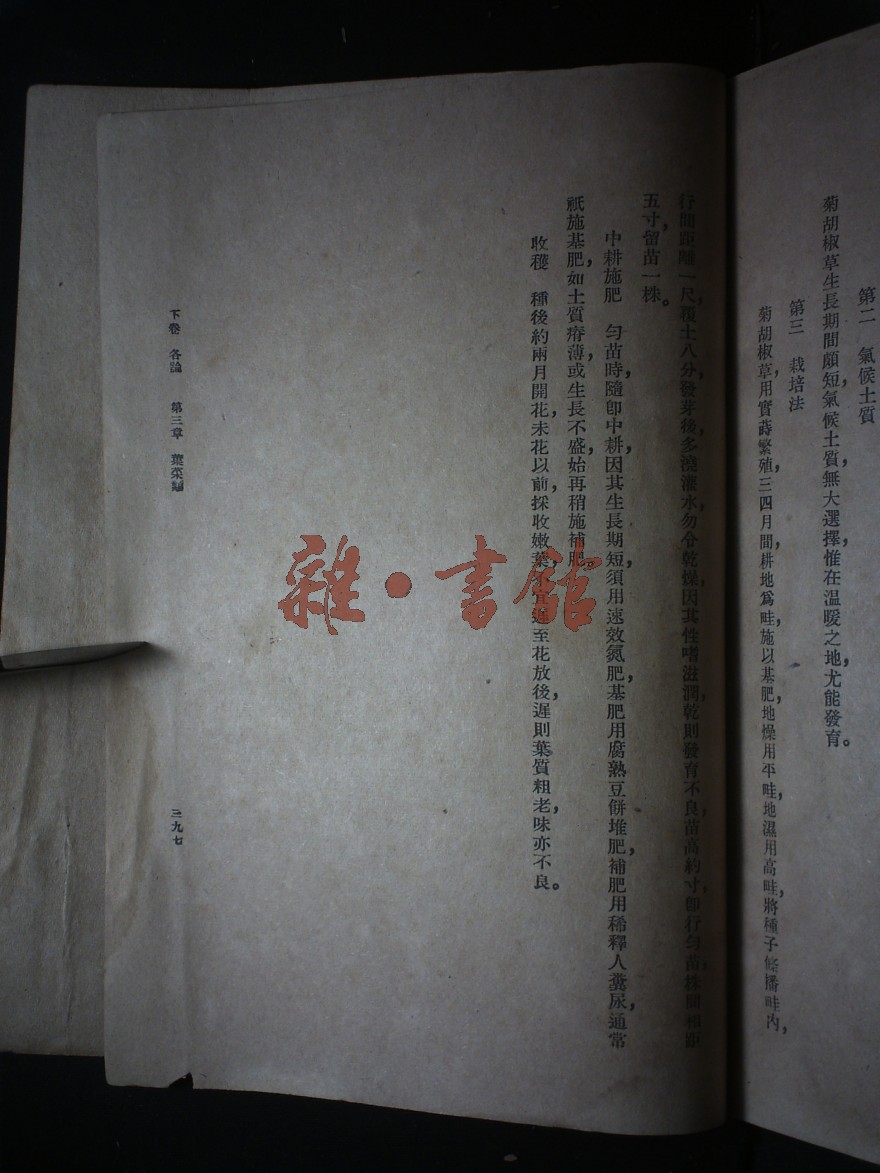 第二　氣候土質
菊胡椒草生長期間頗短，氣候土質，無大選擇，惟在溫暖之地，尤能發育。
第三　栽培法
菊胡椒草，用實蒔繁殖，三四月間，耕地爲畦，施以基肥，地燥用平畦，地濕用高畦，將種子條播畦內，
行間距離一尺，覆土八分，發芽後，多澆灌水，勿令乾燥，因其性嗜滋潤，乾則發育不良，苗高約寸，卽行勻苗，株間相距
五寸，留苗一株。
中耕施肥　勻苗時，隨卽中耕，因其生長期短，須用速效氮肥，基肥用腐熟豆餅堆肥，補肥用稀釋人糞尿，通常
祇施基肥，如土質瘠薄，或生長不盛，始再稍施補肥。
收穫　種後約兩月開花，未花以前，採收嫩葉，不宜遲至花放後，遲則葉質粗老，味亦不良。
下卷　各論　第三章　葉菜類
三九七
雜·書館